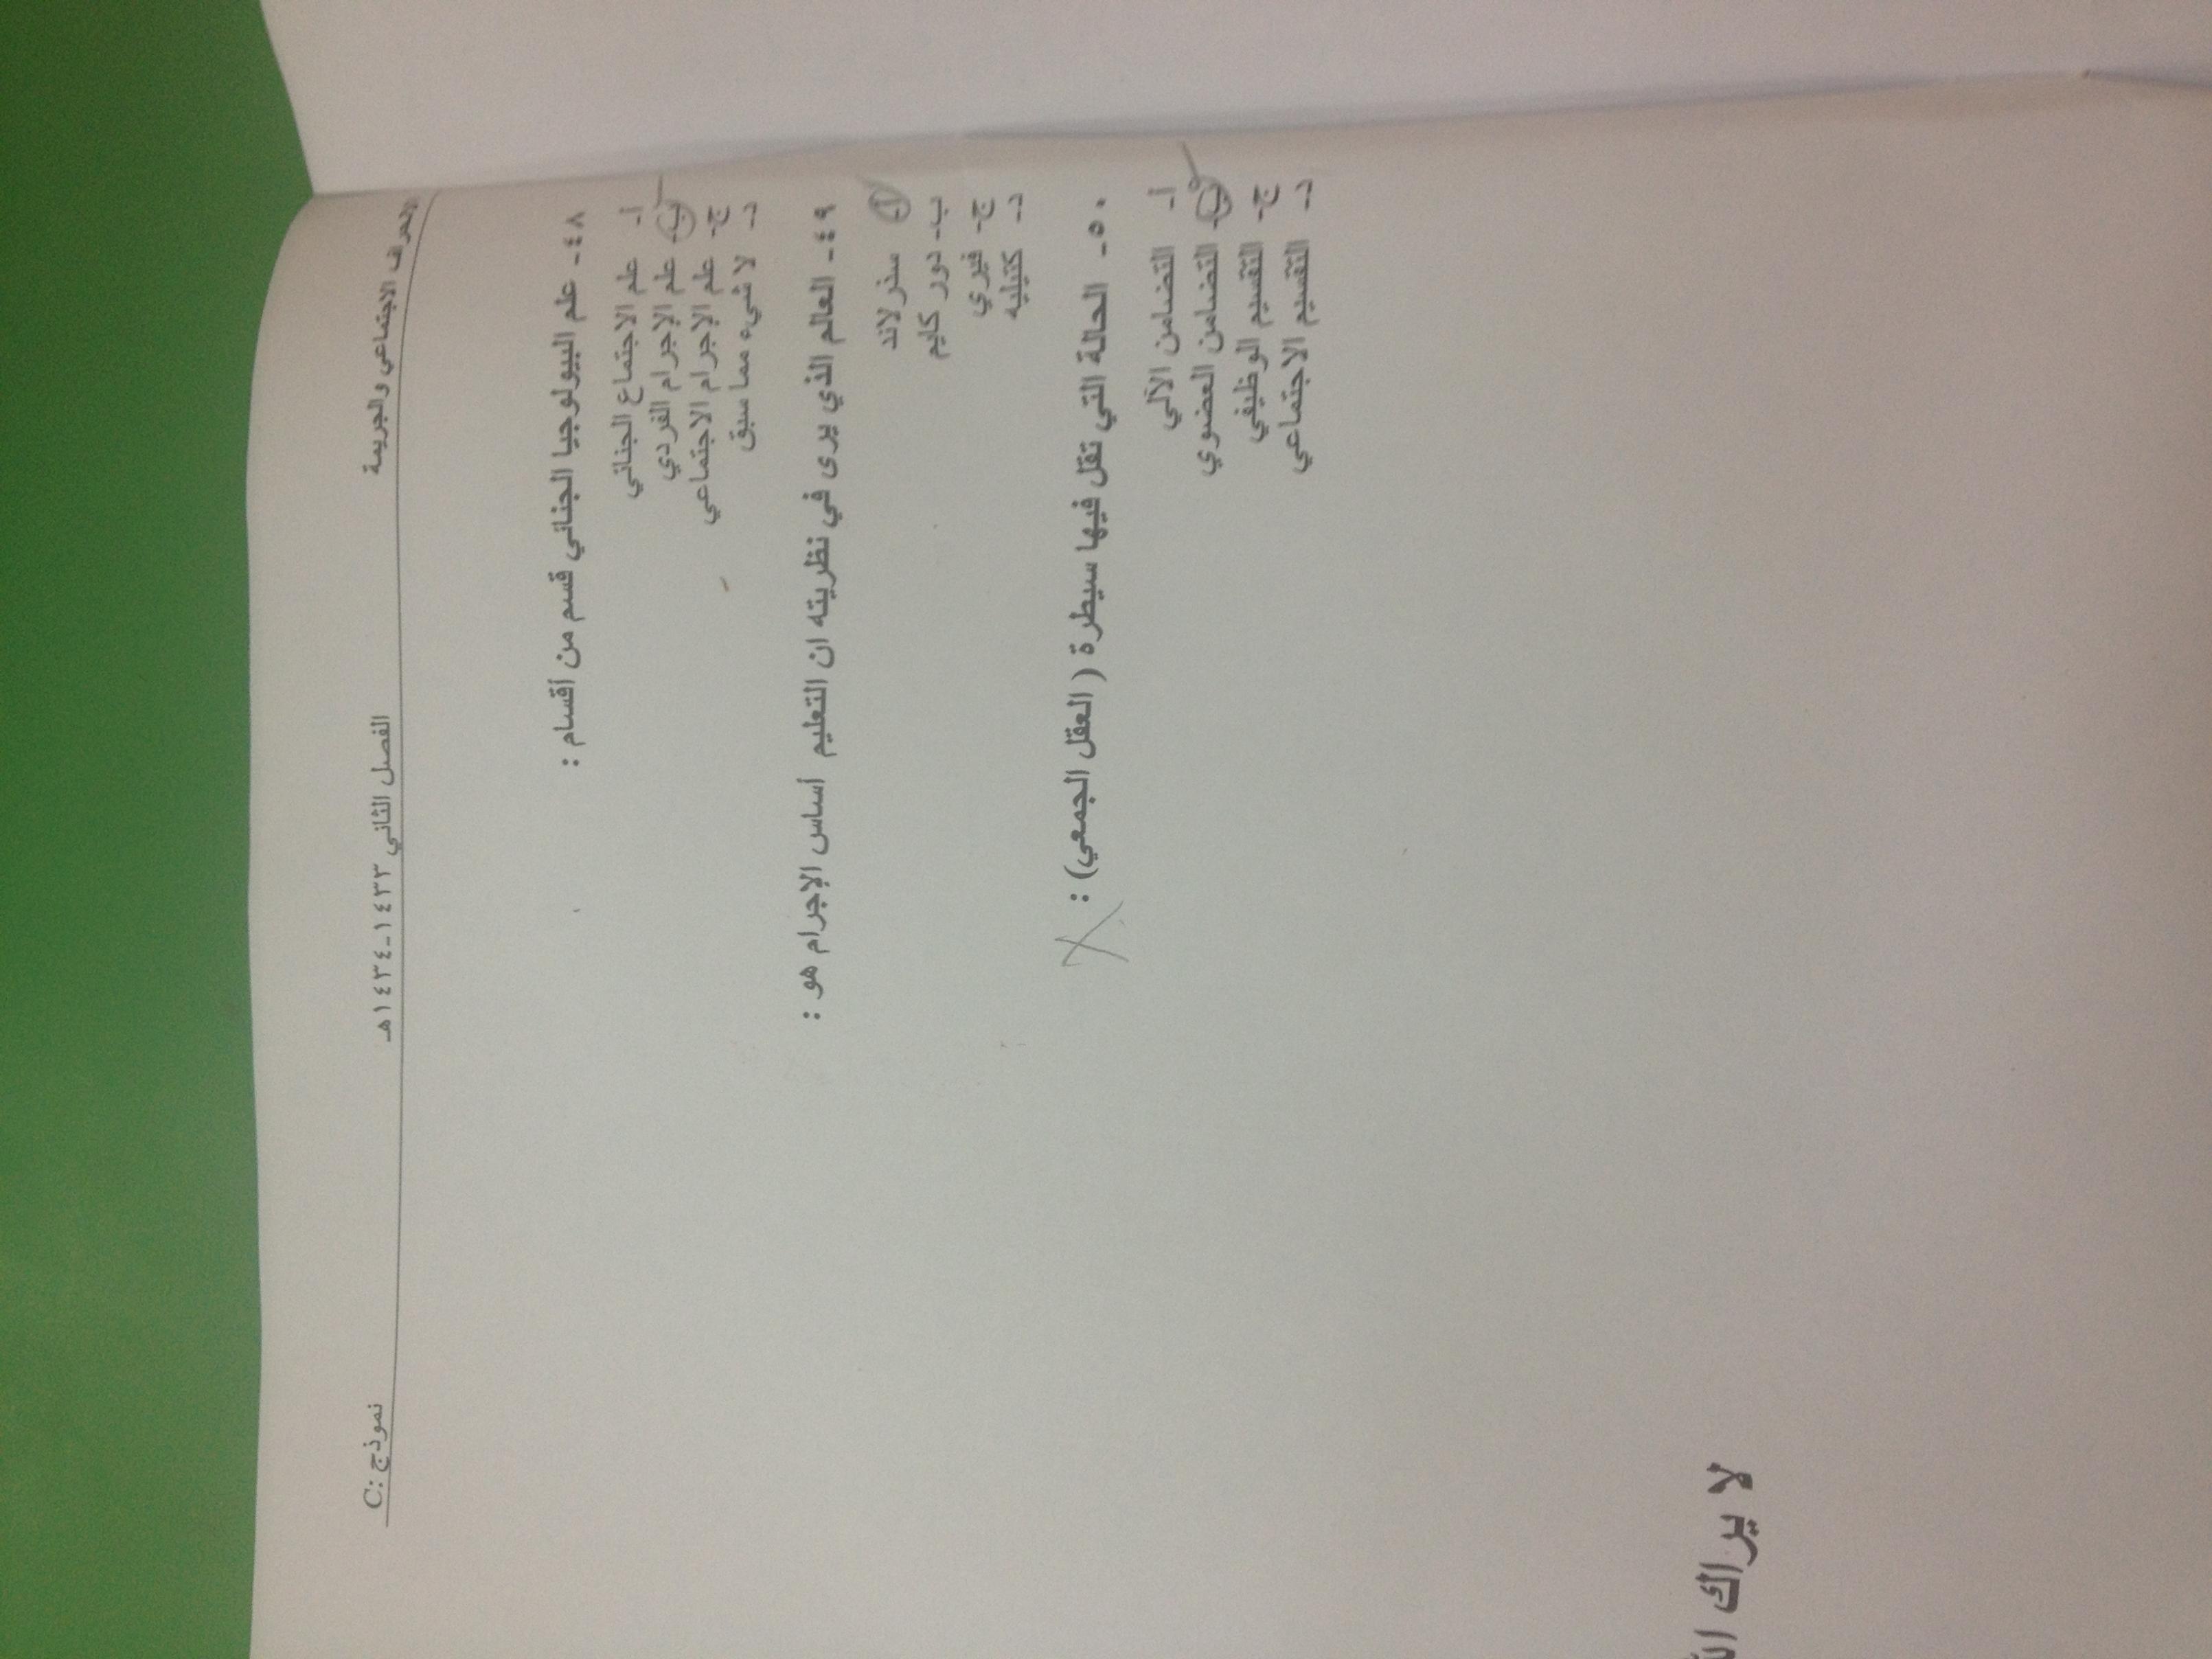 الاجتماعي والجريمة الفصل الثاني ١٤٣٣-١٤٣٤هـ نموذج :C
٤٨- علم البيولوجيا الجنائي قسم من أقسام :
أ- علم الاجتماع الجنائي
ب- علم الإجرام الفردي
ج- علم الإجرام الاجتماعي
د- لا شيء مما سبق
٤٩- العالم الذي يرى في نظريته ان التعليم أساس الإجرام هو :
أ- سذرلاند
ب- دور كايم
ج- فيري
د- كتيليه
٥٠- الحالة التي تقل فيها سيطرة ( العقل الجمعي) :
أ- التضامن الآلي
ب- التضامن العضوي
ج- التقسيم الوظيفي
د- التقسيم الاجتماعي
لا يراك